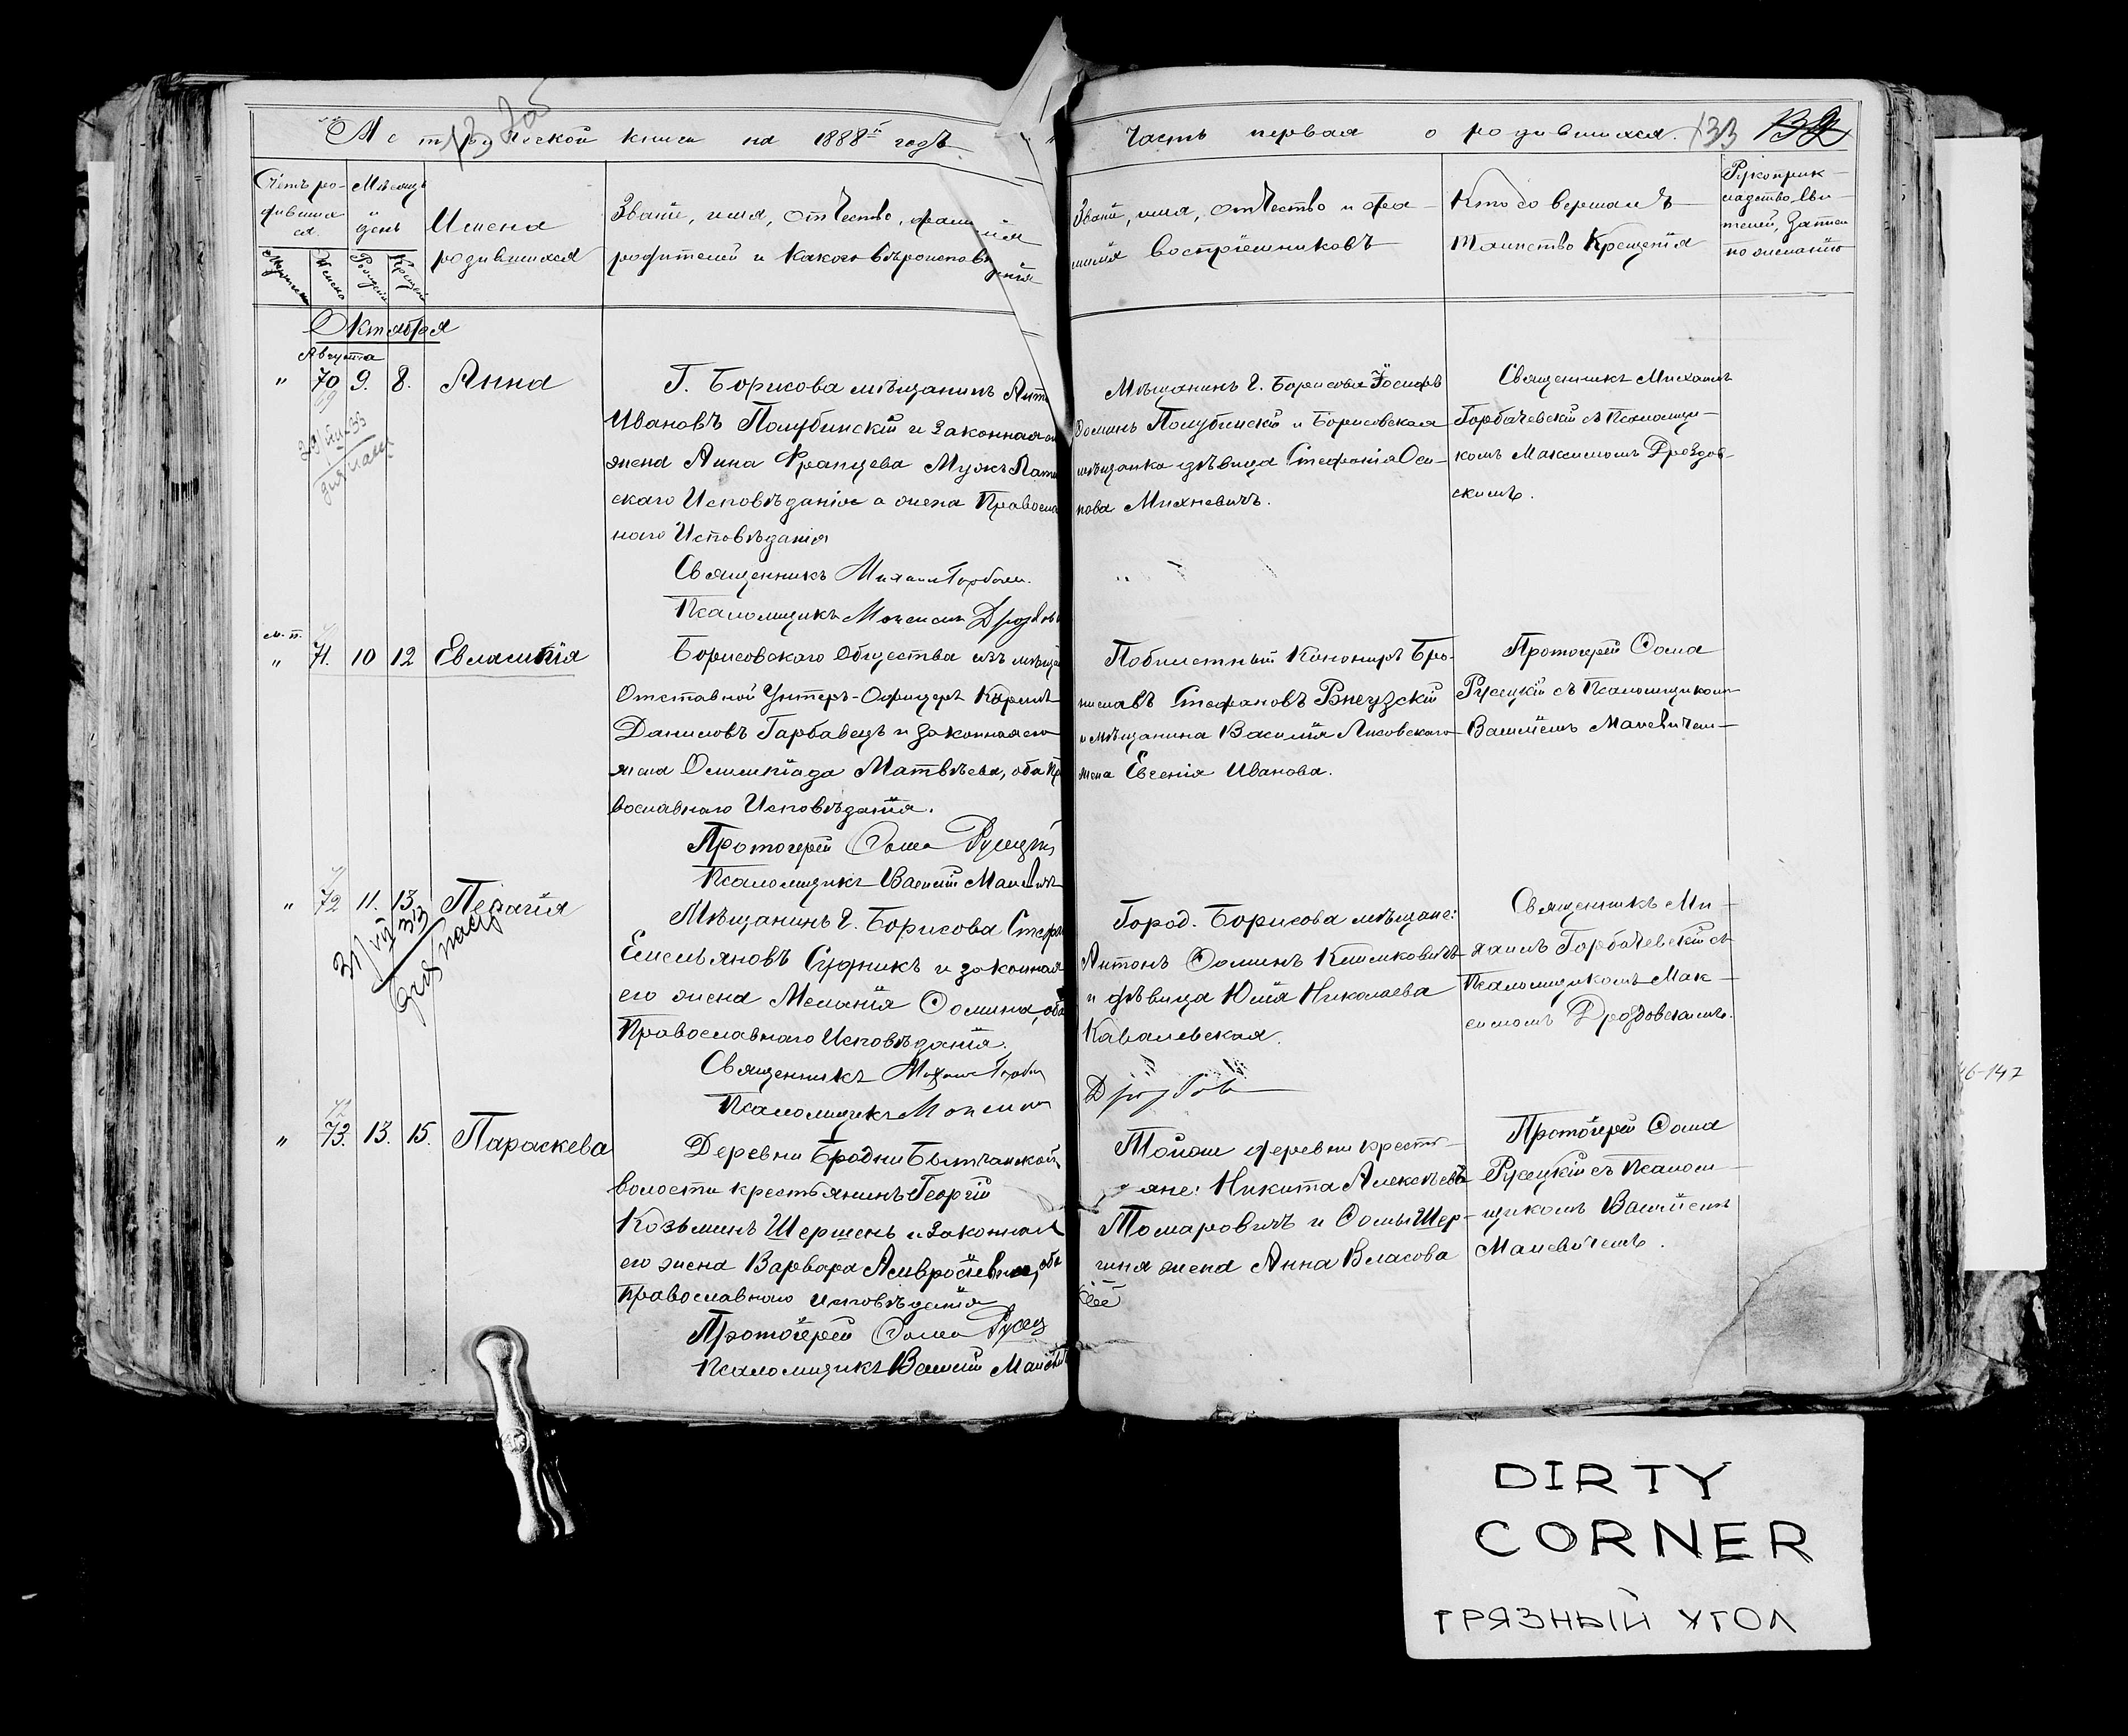 Метрической книги на 1888й годъ
Часть первая о родившихся. 133 132
Счетъ ро-
дивших
ся.
Мѣсяцъ
и
день
Имена
родившихся
Званіе, имя, отчество, фамилія
родителей и какого вѣроисповѣданія
Званіе, имя, отчество и фа-
милія воспріемниковъ
Кто совершалъ
таинство Крещенія
Рукоприк-
ладство сви-
телей записи
по желанію
Женска
Рожденія
Крещен
Октября
Августа
" 70 9. 8. Анна
Г. Борисова мѣщанинъ Анто
Ивановъ Полубинскій и законная
жена Анна Францева Мужъ Лати
скаго Исповѣданія а жена Правосла
наго Исповѣданія
Священникъ Михаил Горбаче
Псаломщикъ Максим Дроздов
Мѣщанинъ г. Борисова Іосифъ
Фоминъ Полубинскій и Борисовская
мѣщанка дѣвица Стефанія Оси-
пова Михневичъ.
Священникъ Михаилъ
Горбачевскій съ Псаломщи-
комъ Максимомъ Дроздов-
скимъ.
м. п.
" 71. 10 12 Евлампія
Борисовскаго Общества изъ мѣща
Отставной Унтеръ-Офицеръ Карпъ
Даниловъ Гарбавецъ и законная его
жена Олимпіада Матвѣева, оба Пр
вославнаго Исповѣданія.
Протоіерей Фома Русецкій
Псаломщикъ Василій Малевичъ
Канониръ Бро-
ниславъ Стефановъ
и мѣщанина Василія Лисовскаго
жена Евгенія Иванова.
Протоіерей Фома
Русецкій съ Псаломщикомъ
Василіемъ Малевичем
" 72 11. 13. Пелагія
21/VII 33
для пасп
Мѣщанинъ г. Борисова Стефа
Емельяновъ Судникъ и законная
его жена Меланія Фомина, оба
Православнаго Исповѣданія.
Священникъ Михаил Горбач
Псаломщикъ Максим
Дроздов
Город. Борисова мѣщане:
Антонъ Фоминъ Климковичъ
и дѣвица Юлія Николаева
Кавалевская.
Священникъ Ми-
хаилъ Горбачевскій съ
Псаломщикомъ Мак-
симомъ Дроздовскимъ.
" 73. 13. 15. Параскева
Деревни Бродни Бытчанской
волости крестьянинъ Георгій
Козьминъ Шершень и законная
его жена Варвара Амвросіевна, оба
Православнаго исповѣданія
Протоіерей Фома Русец
Псаломщикъ Василій Малевич
Тойже деревни кресть-
яне: Никита Алексѣевъ
Томаровичъ и Фомы Шер-
жена Анна Власова
Протоіерей Фома
Русецкій съ Псалом-
щикомъ Василіемъ
Малевичемъ.
46-147
DIRTY
CORNER
ГРЯЗНЫЙ УГОЛ